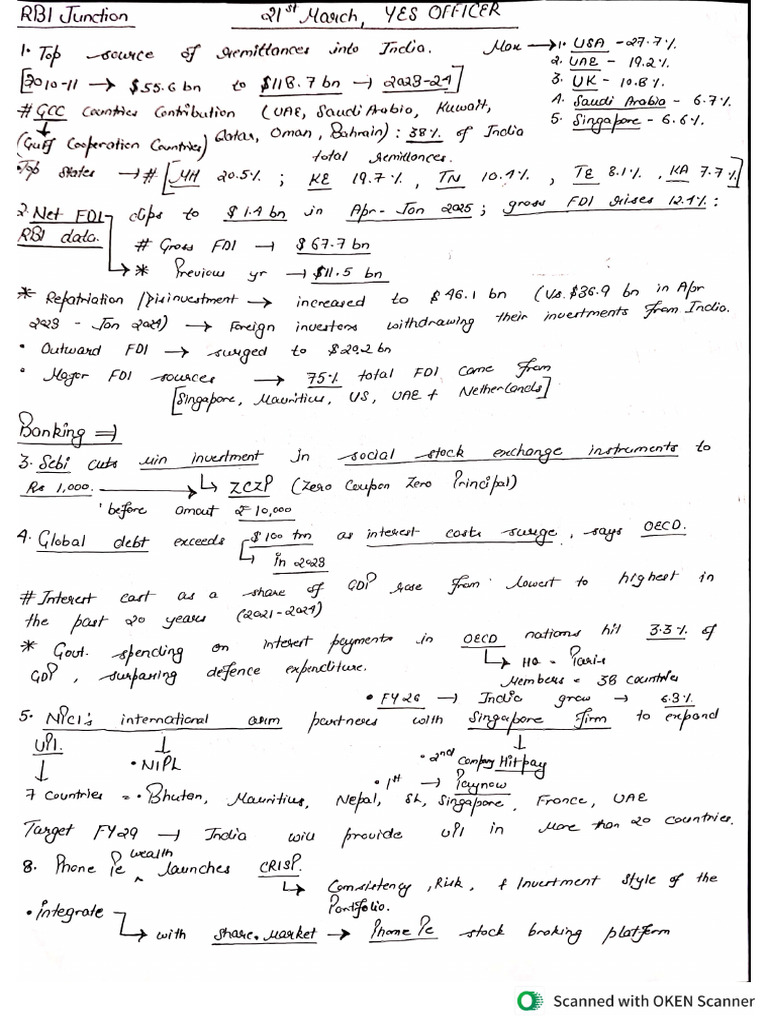 RBI Junction 21st March, YES OFFICER
1. Top source of remittances into India. Max → 1. USA - 27.7%
2. UAE - 19.2%
[2010-11 → $55.6 bn to $118.7 bn → 2023-24] 3. UK - 10.8%
# GCC Countries Contribution (UAE, Saudi Arabia, Kuwait, 4. Saudi Arabia - 6.7%
(Gulf Cooperation Countries) Qatar, Oman, Bahrain) : 38% of India 5. Singapore - 6.6%
total remittances.
• Top States → # [MH 20.5% ; KE 19.7%, TN 10.4%, TE 8.1%, KA 7.7%]
2. Net FDI dips to $1.4 bn in Apr - Jan 2025 ; gross FDI rises 12.4% :
RBI data. # Gross FDI → $67.7 bn
→ * Previous yr → $11.5 bn
* Repatriation / Disinvestment → increased to $46.1 bn (Vs. $36.9 bn in Apr
2023 - Jan 2024) → Foreign investors withdrawing their investments from India.
• Outward FDI → surged to $20.2 bn
• Major FDI sources → 75% total FDI came from
[Singapore, Mauritius, US, UAE + Netherlands]
Banking ⇒
3. Sebi cuts min investment in social stock exchange instruments to
Rs 1,000. → ZCZP (Zero Coupon Zero Principal)
'before amout ₹10,000
4. Global debt exceeds $100 trn as interest costs surge, says OECD.
→ in 2023
# Interest cost as a share of GDP rose from lowest to highest in
the past 20 years (2021-2024)
* Govt. spending on interest payments in OECD nations hit 3.3% of
GDP, surpasing defence expenditure. → HQ = Paris
Members = 38 Countries
• FY26 → India grow → 6.3%
5. NPCI's international arm partners with Singapore firm to expand
UPI. ↓ • NIPL • 2nd Company Hitpay
↓ • 1st → Paynow
7 Countries = • Bhutan, Mauritius, Nepal, SL, Singapore, France, UAE
Target FY29 → India will provide UPI in More than 20 countries.
8. Phone Pe ^ wealth launches CRISP.
→ Consistency, Risk, + Investment style of the
Portfolio.
• integrate
→ with share. market → Phone Pe stock broking platform
Scanned with OKEN Scanner